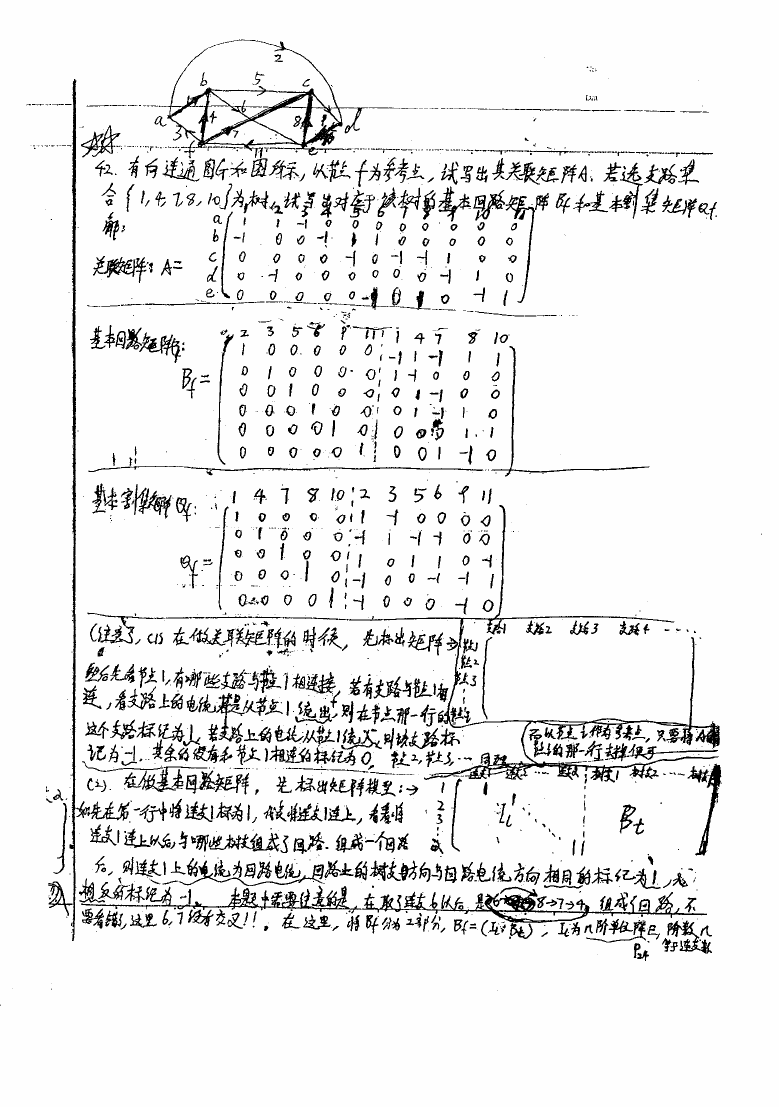 2
b 5 c
a 1 4 6 8 9 d
3 7
f 11 e
42. 有向连通图G如图所示，以节点f为参考点，试写出其关联矩阵A. 若选支路集
合{1,4,7,8,10}为树，试写出对应于该树的基本回路矩阵Bf和基本割集矩阵Qf.
解:
1 2 3 4 5 6 7 8 9 10 11
a 1 1 -1 0 0 0 0 0 0 0 0
b -1 0 0 -1 1 1 0 0 0 0 0
关联矩阵: A= c 0 0 0 0 -1 0 -1 -1 1 0 0
d 0 -1 0 0 0 0 0 0 -1 1 0
e 0 0 0 0 0 -1 0 1 0 -1 1
基本回路矩阵: 2 3 5 6 9 11 1 4 7 8 10
Bf=
1 0 0 0 0 0 -1 1 -1 1 1
0 1 0 0 0 0 1 -1 0 0 0
0 0 1 0 0 0 0 1 -1 0 0
0 0 0 1 0 0 0 1 -1 1 0
0 0 0 0 1 0 0 0 0 1 1
0 0 0 0 0 1 0 0 1 -1 0
基本割集矩阵Qf: 1 4 7 8 10 2 3 5 6 9 11
Qf=
1 0 0 0 0 1 -1 0 0 0 0
0 1 0 0 0 -1 1 -1 -1 0 0
0 0 1 0 0 1 0 1 1 0 -1
0 0 0 1 0 -1 0 0 -1 -1 1
0 0 0 0 1 -1 0 0 0 -1 0
(注意了, (1) 在做关联矩阵的时候，先标出矩阵→ 支路1 支路2 支路3 支路4 ……
节点1
节点2
节点3
然后先看节点1，有哪些支路与节点1相连接，若有支路与节点1相
连，看支路上的电流若是从节点1流出，则在节点那一行的
这个支路标记为1，若支路上的电流从节点1流入，则该支路标
记为-1，其余的没有和节点1相连的标记为0，节点2,节点3,…同理
而以节点f作为参考点，只要将A中
的那一行去掉便可
(2). 在做基本回路矩阵，先标出矩阵模型:→
连支1 连支2 … 树支1 树支2 …
1
2
3
Bt
如先在第一行中将连支1标为1，做支将连支1连上，看看将
连支1连上以后，与哪些树枝组成了回路. 组成一个回路
后，则连支1上的电流为回路电流，回路上的树支方向与回路电流方向相同的标记为1，
相反的标记为-1。本题中需要注意的是，在取了连支6以后，是 8→7→4 组成了回路，不
要看错，这里6,7没有交叉!!。在这里，将Bf分为2部分，Bf=(Il Bt)，Il为n阶单位阵E，阶数n
等于连支数
P24